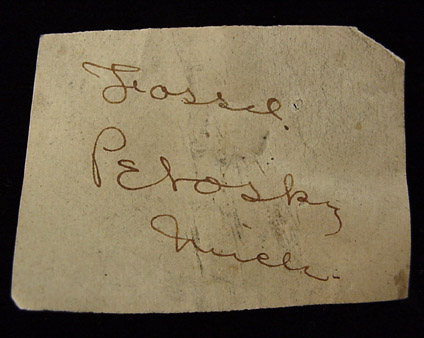 Fossil.
Petosky
Mich.